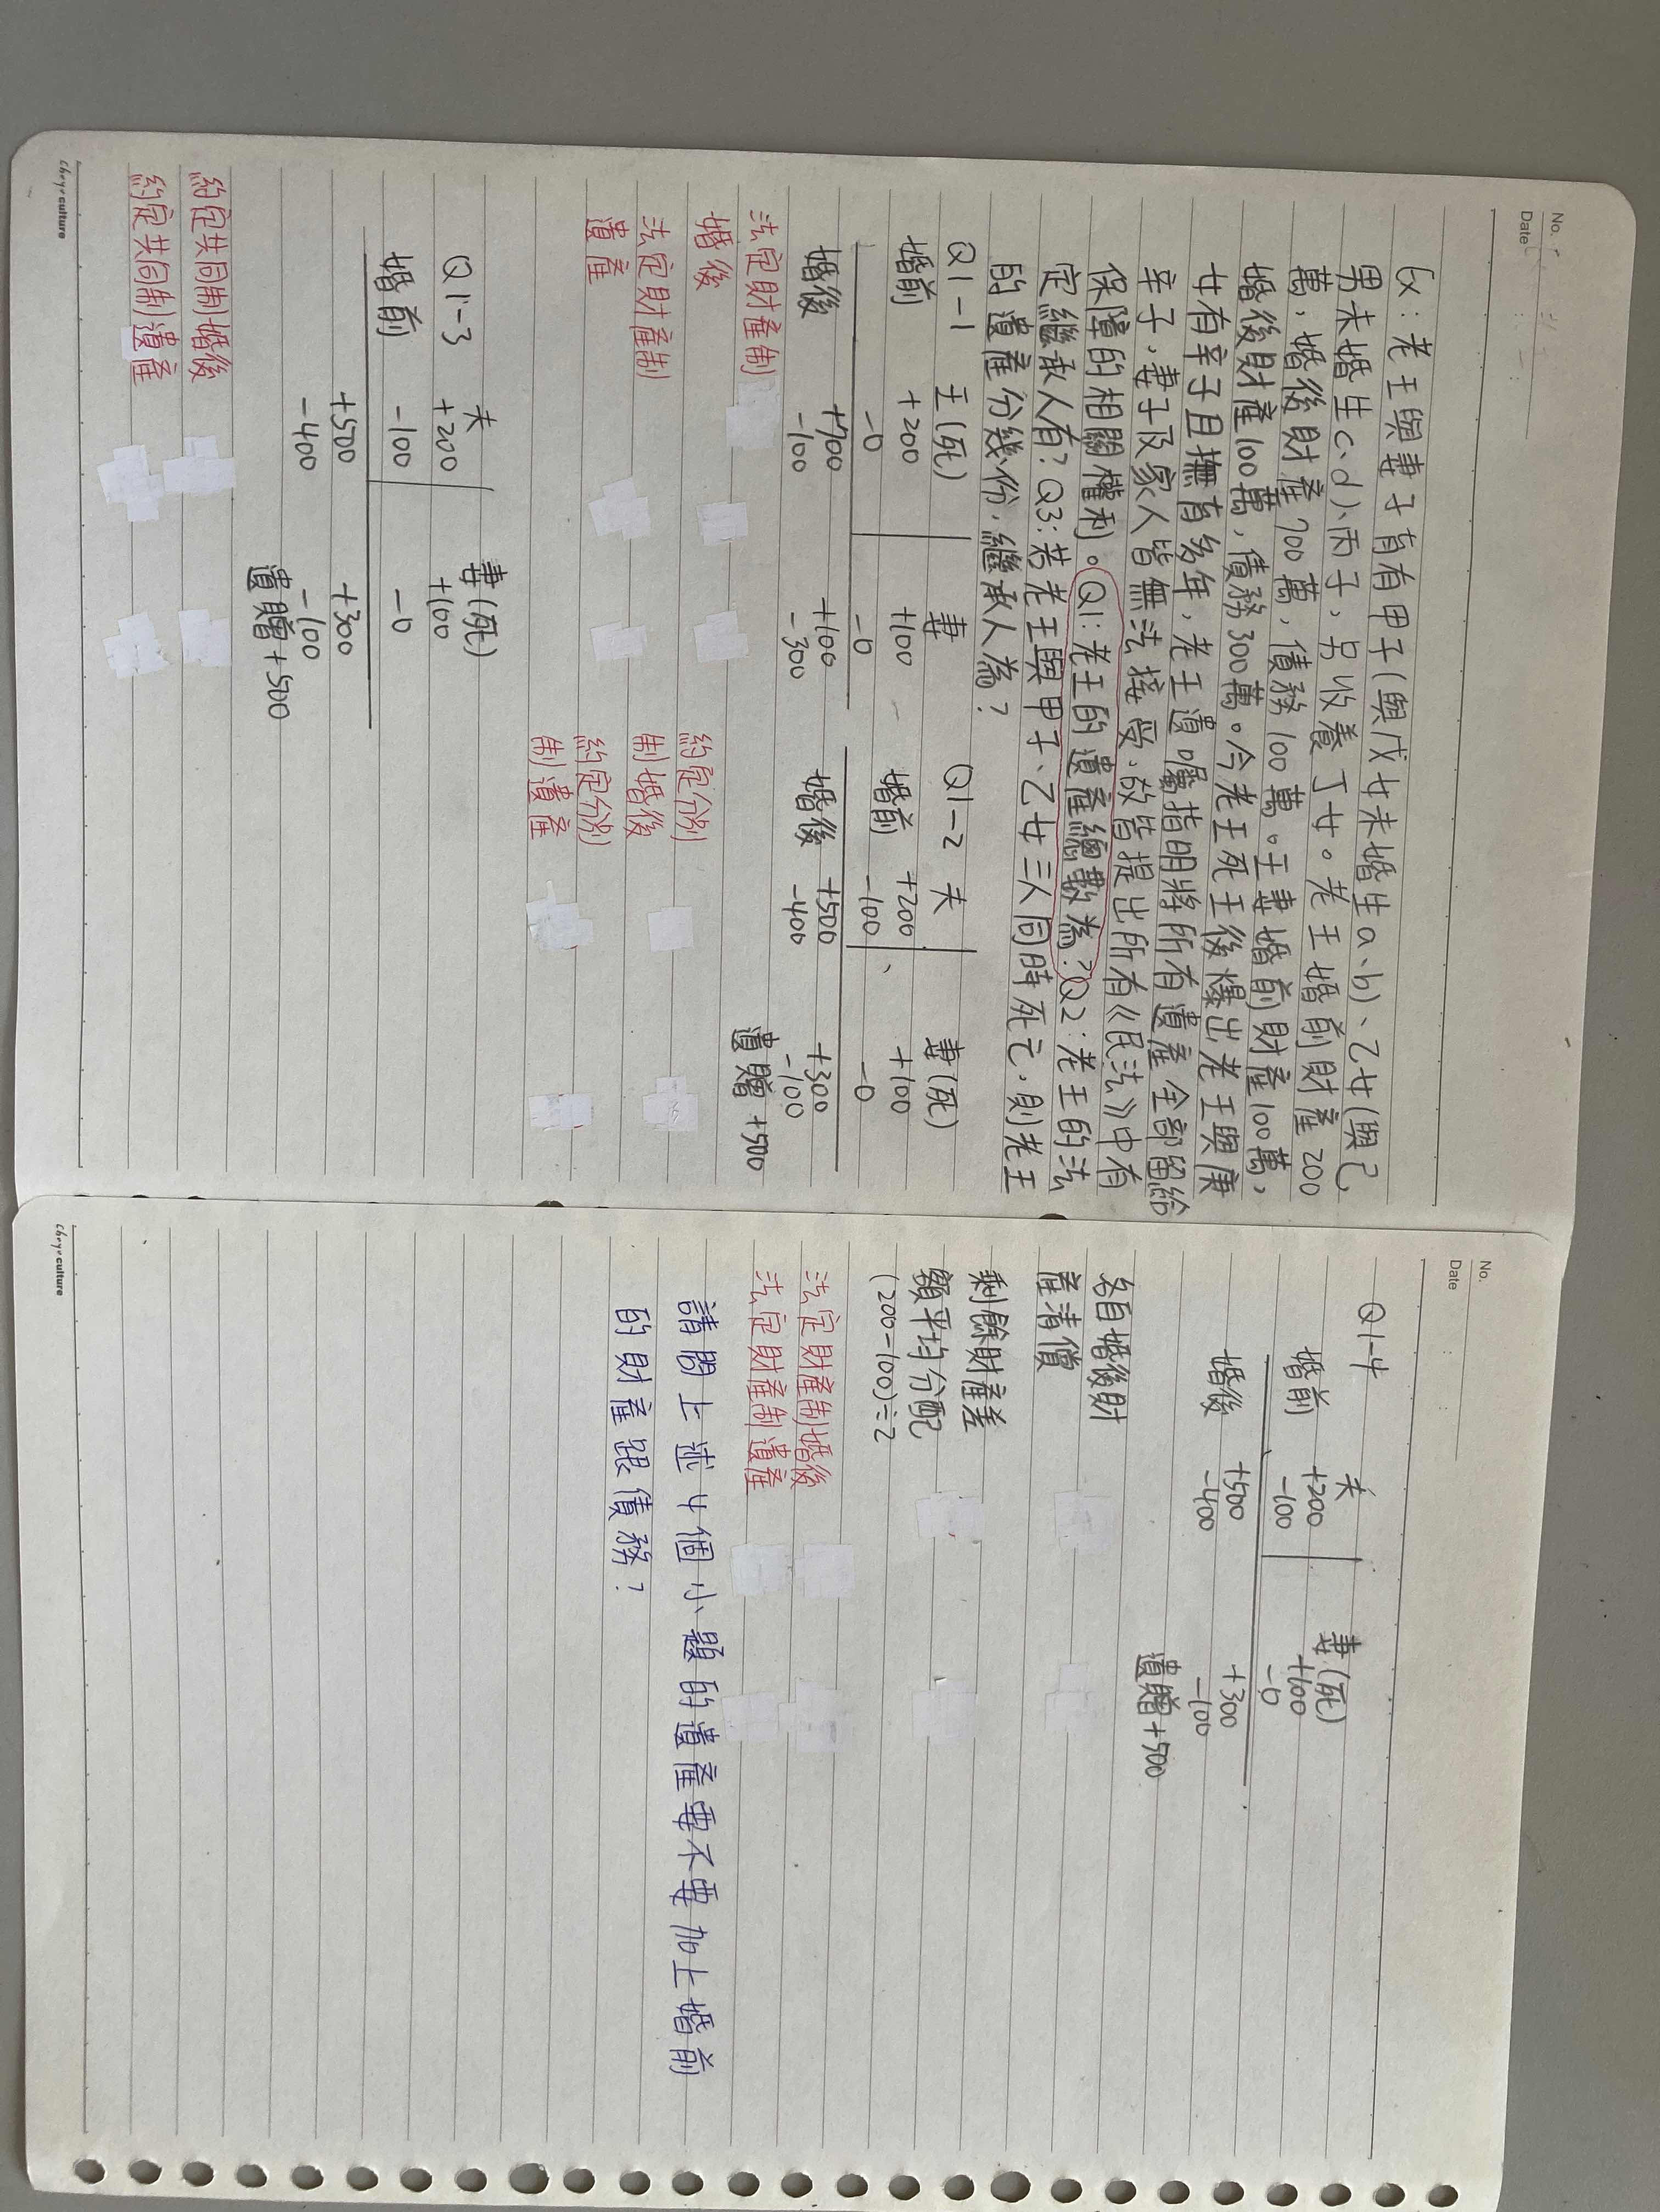 No.
Date
Ex：老王與妻子育有甲子(與戊女未婚生a、b)、乙女(與己
男未婚生c、d)、丙子，另收養丁女。老王婚前財產200
萬，婚後財產700萬，債務100萬。王妻婚前財產100萬，
婚後財產100萬，債務300萬。今老王死亡後爆出老王與庚
女有辛子且撫育多年，老王遺囑指明將所有遺產全部留給
辛子，妻子及家人皆無法接受，故皆提出所有《民法》中有
保障的相關權利。Q1：老王的遺產總數為？Q2：老王的法
定繼承人有？Q3：若老王與甲子、乙女三人同時死亡，則老王
的遺產分幾份，繼承人為？
Q1-1 王(死) 妻
婚前 +200 +100
-0 -0
婚後 +700 +100
-100 -300
法定財產制
婚後
法定財產制
遺產
Q1-2 夫 妻(死)
婚前 +200 +100
-100 -0
婚後 +500 +300
-400 -100
遺贈+500
約定分別
制婚後
約定分別
制遺產
Q1-3 夫 妻(死)
婚前 +200 +100
-100 -0
+500 +300
-400 -100
遺贈+500
約定共同制婚後
約定共同制遺產
cheyeculture
No.
Date
Q1-4 夫 妻(死)
婚前 +200 +100
-100 -0
婚後 +500 +300
-400 -100
遺贈+500
各自婚後財
產清償
剩餘財產差
額平均分配
(200-100)÷2
法定財產制婚後
法定財產制遺產
請問上述4個小題的遺產要不要加上婚前
的財產跟債務？
cheyeculture